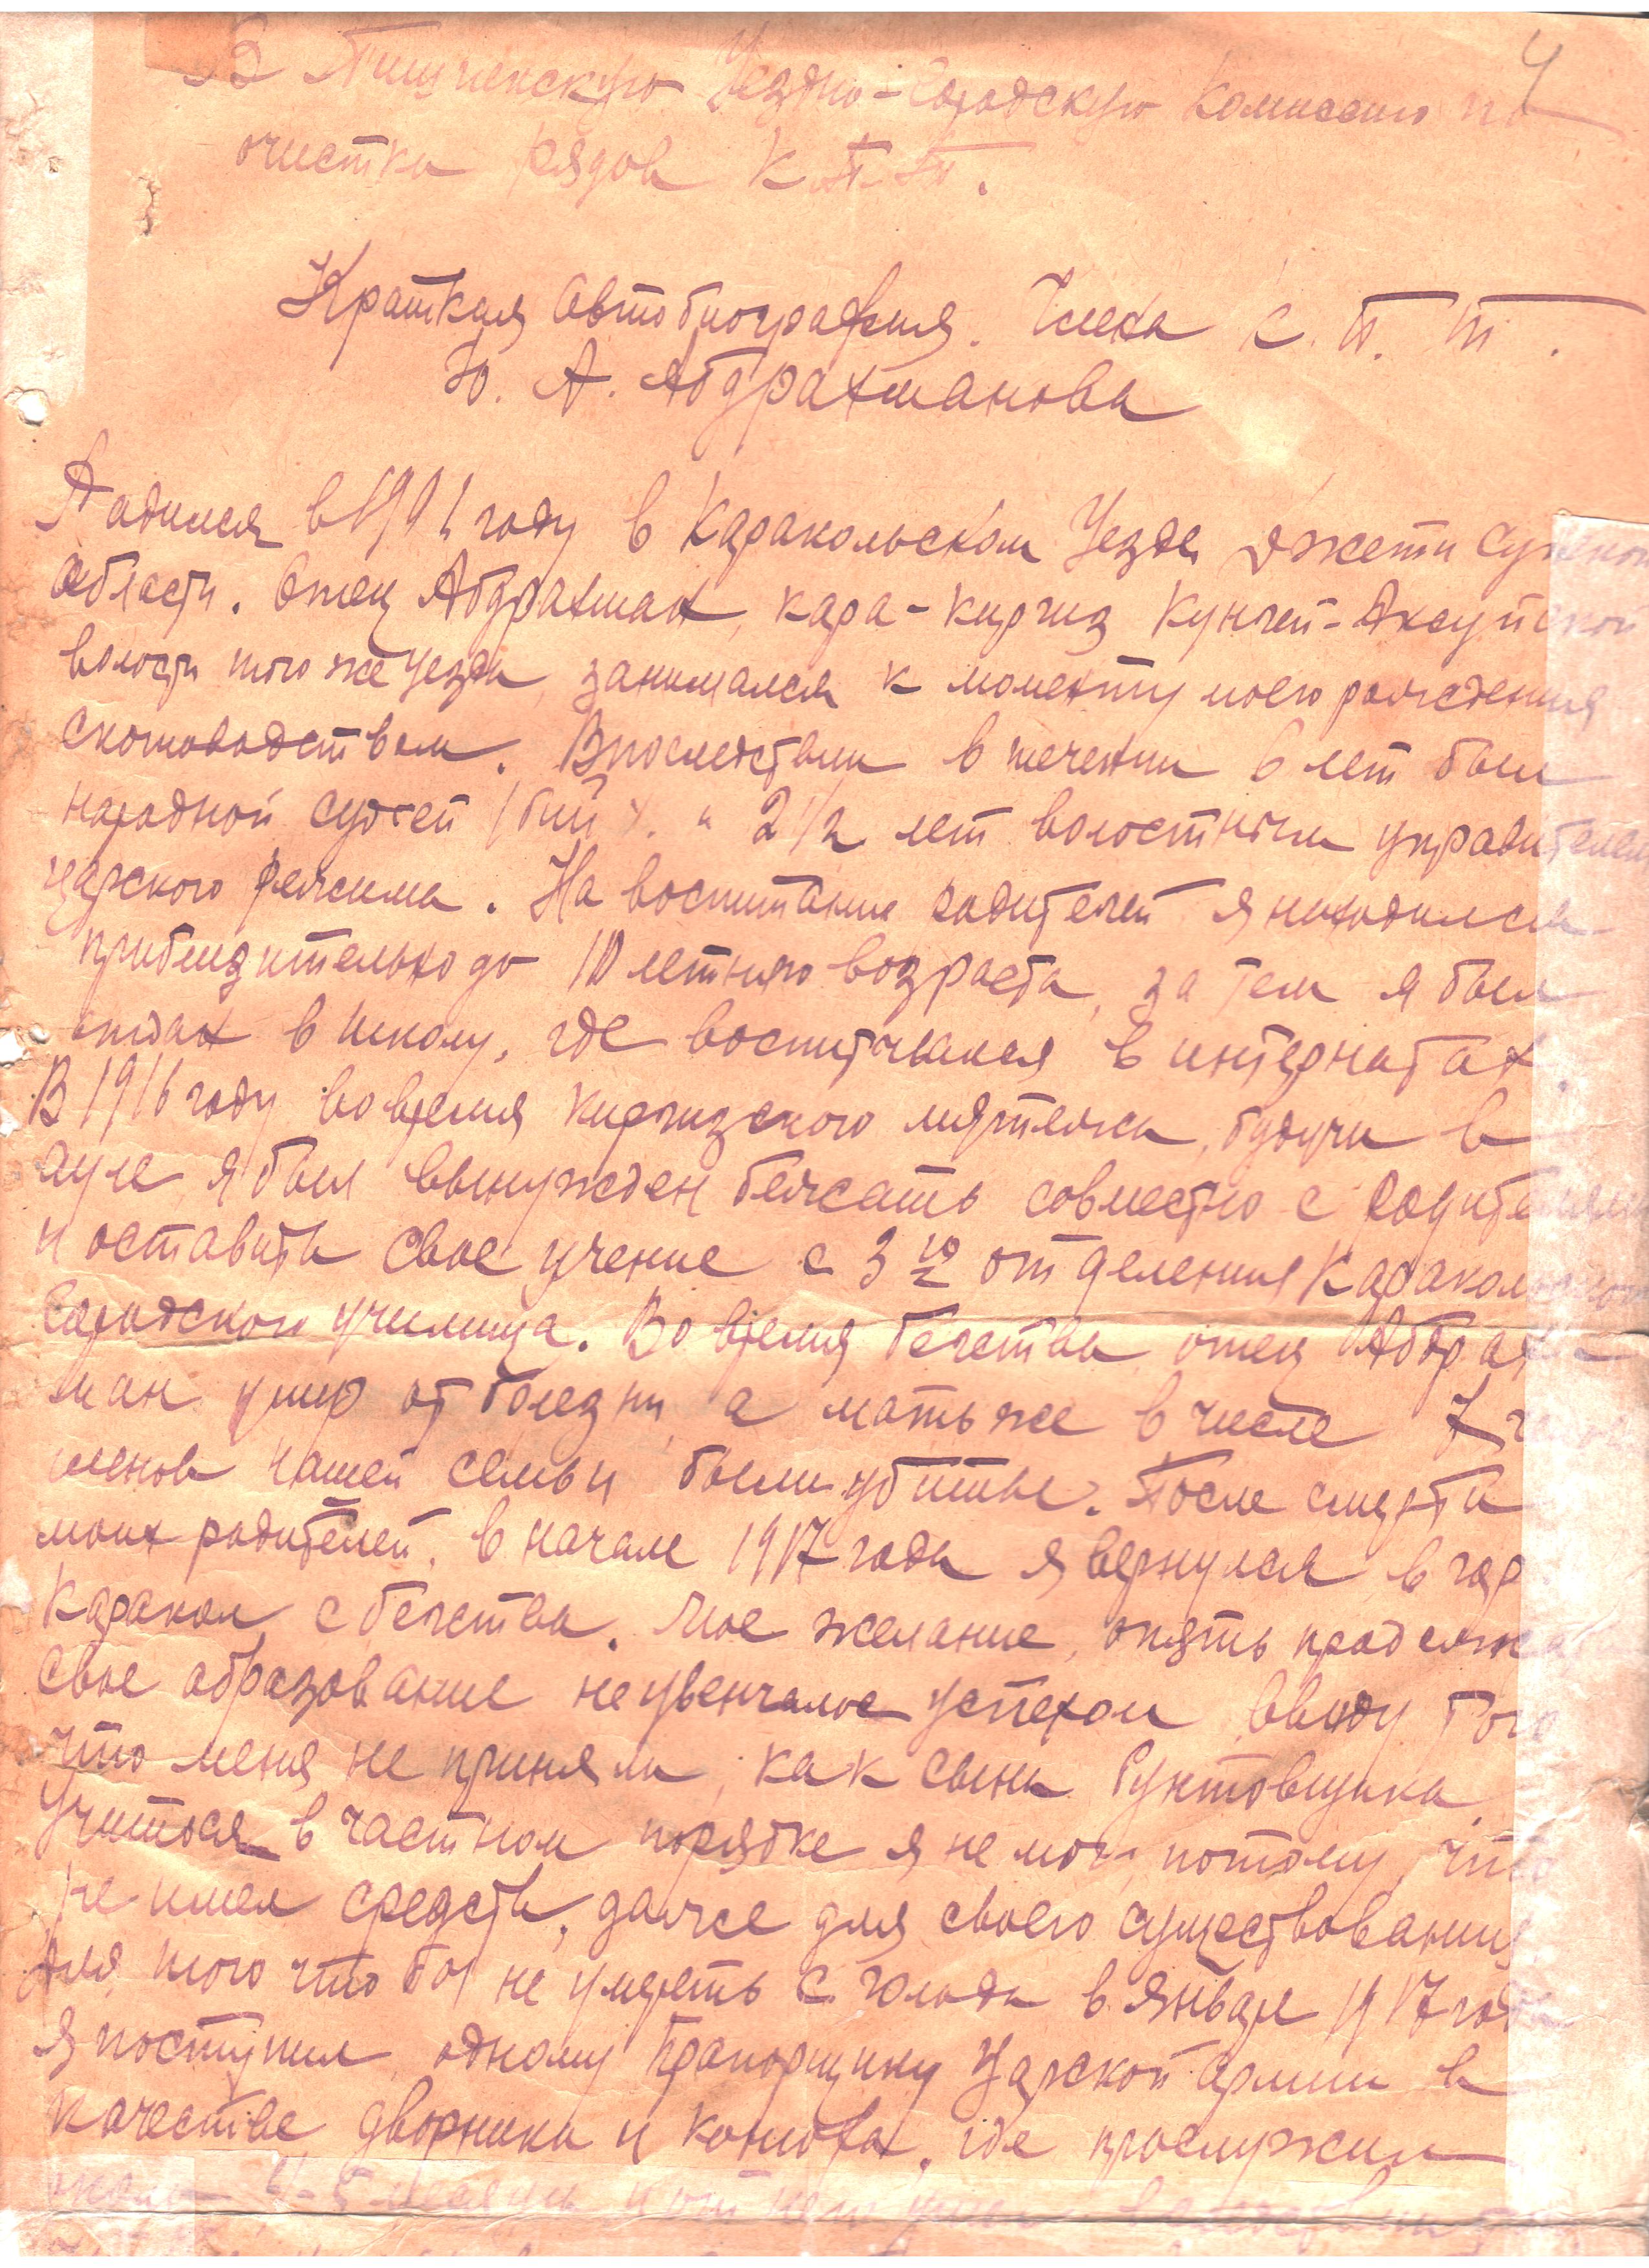 В Пишпекскую Уездно-Городскую Комиссию по
очистки рядов К.П.Т.
4
Краткая Автобиография. Члена К. П. Т.
Ю. А. Абдрахманова
Радился в 1901 году в Каракольском Уезде Джети Суйской
области. Отец Абдрахман, кара-киргиз Кунгей-Аксуйской
волости того же уезда, занимался к моменту моего рождения
скотоводством. Впоследствии в течении 6 лет был
народной судьей /бий/. и 2 1/2 лет волостным управителем
царского режима. На воспитание родителей я находился
приблизительно до 10 летняго возраста, за тем я был
отдан в школу, где воспитывался в интернатах.
В 1916 году во время киргизского мятежа, будучи в
ауле, я был вынужден бежать совместно с родителями
и оставить свое учение с 3 го отделения Каракольского
Городского училища. Во время бегства отец Абдрах-
ман умер от болезни, а мать же в числе 7
членов нашей семьи были убитые. После смерти
моих родителей, в начале 1917 года я вернулся в гор.
Каракол с бегства. Мое желание, опять продолжа
свое образование неувенчалос успехом ввиду того
что меня не приняли, как сына бунтовщика.
Учиться в частном порядке я не мог, потому, что
не имел средств, даже для своего существования
Для того что бы не умереть с голода в январе 1917 года
я поступил одному Прапорщику Царской армии в
качестве дворника и конюха, где прослужил
около 4-5 месяцы и от него ушел